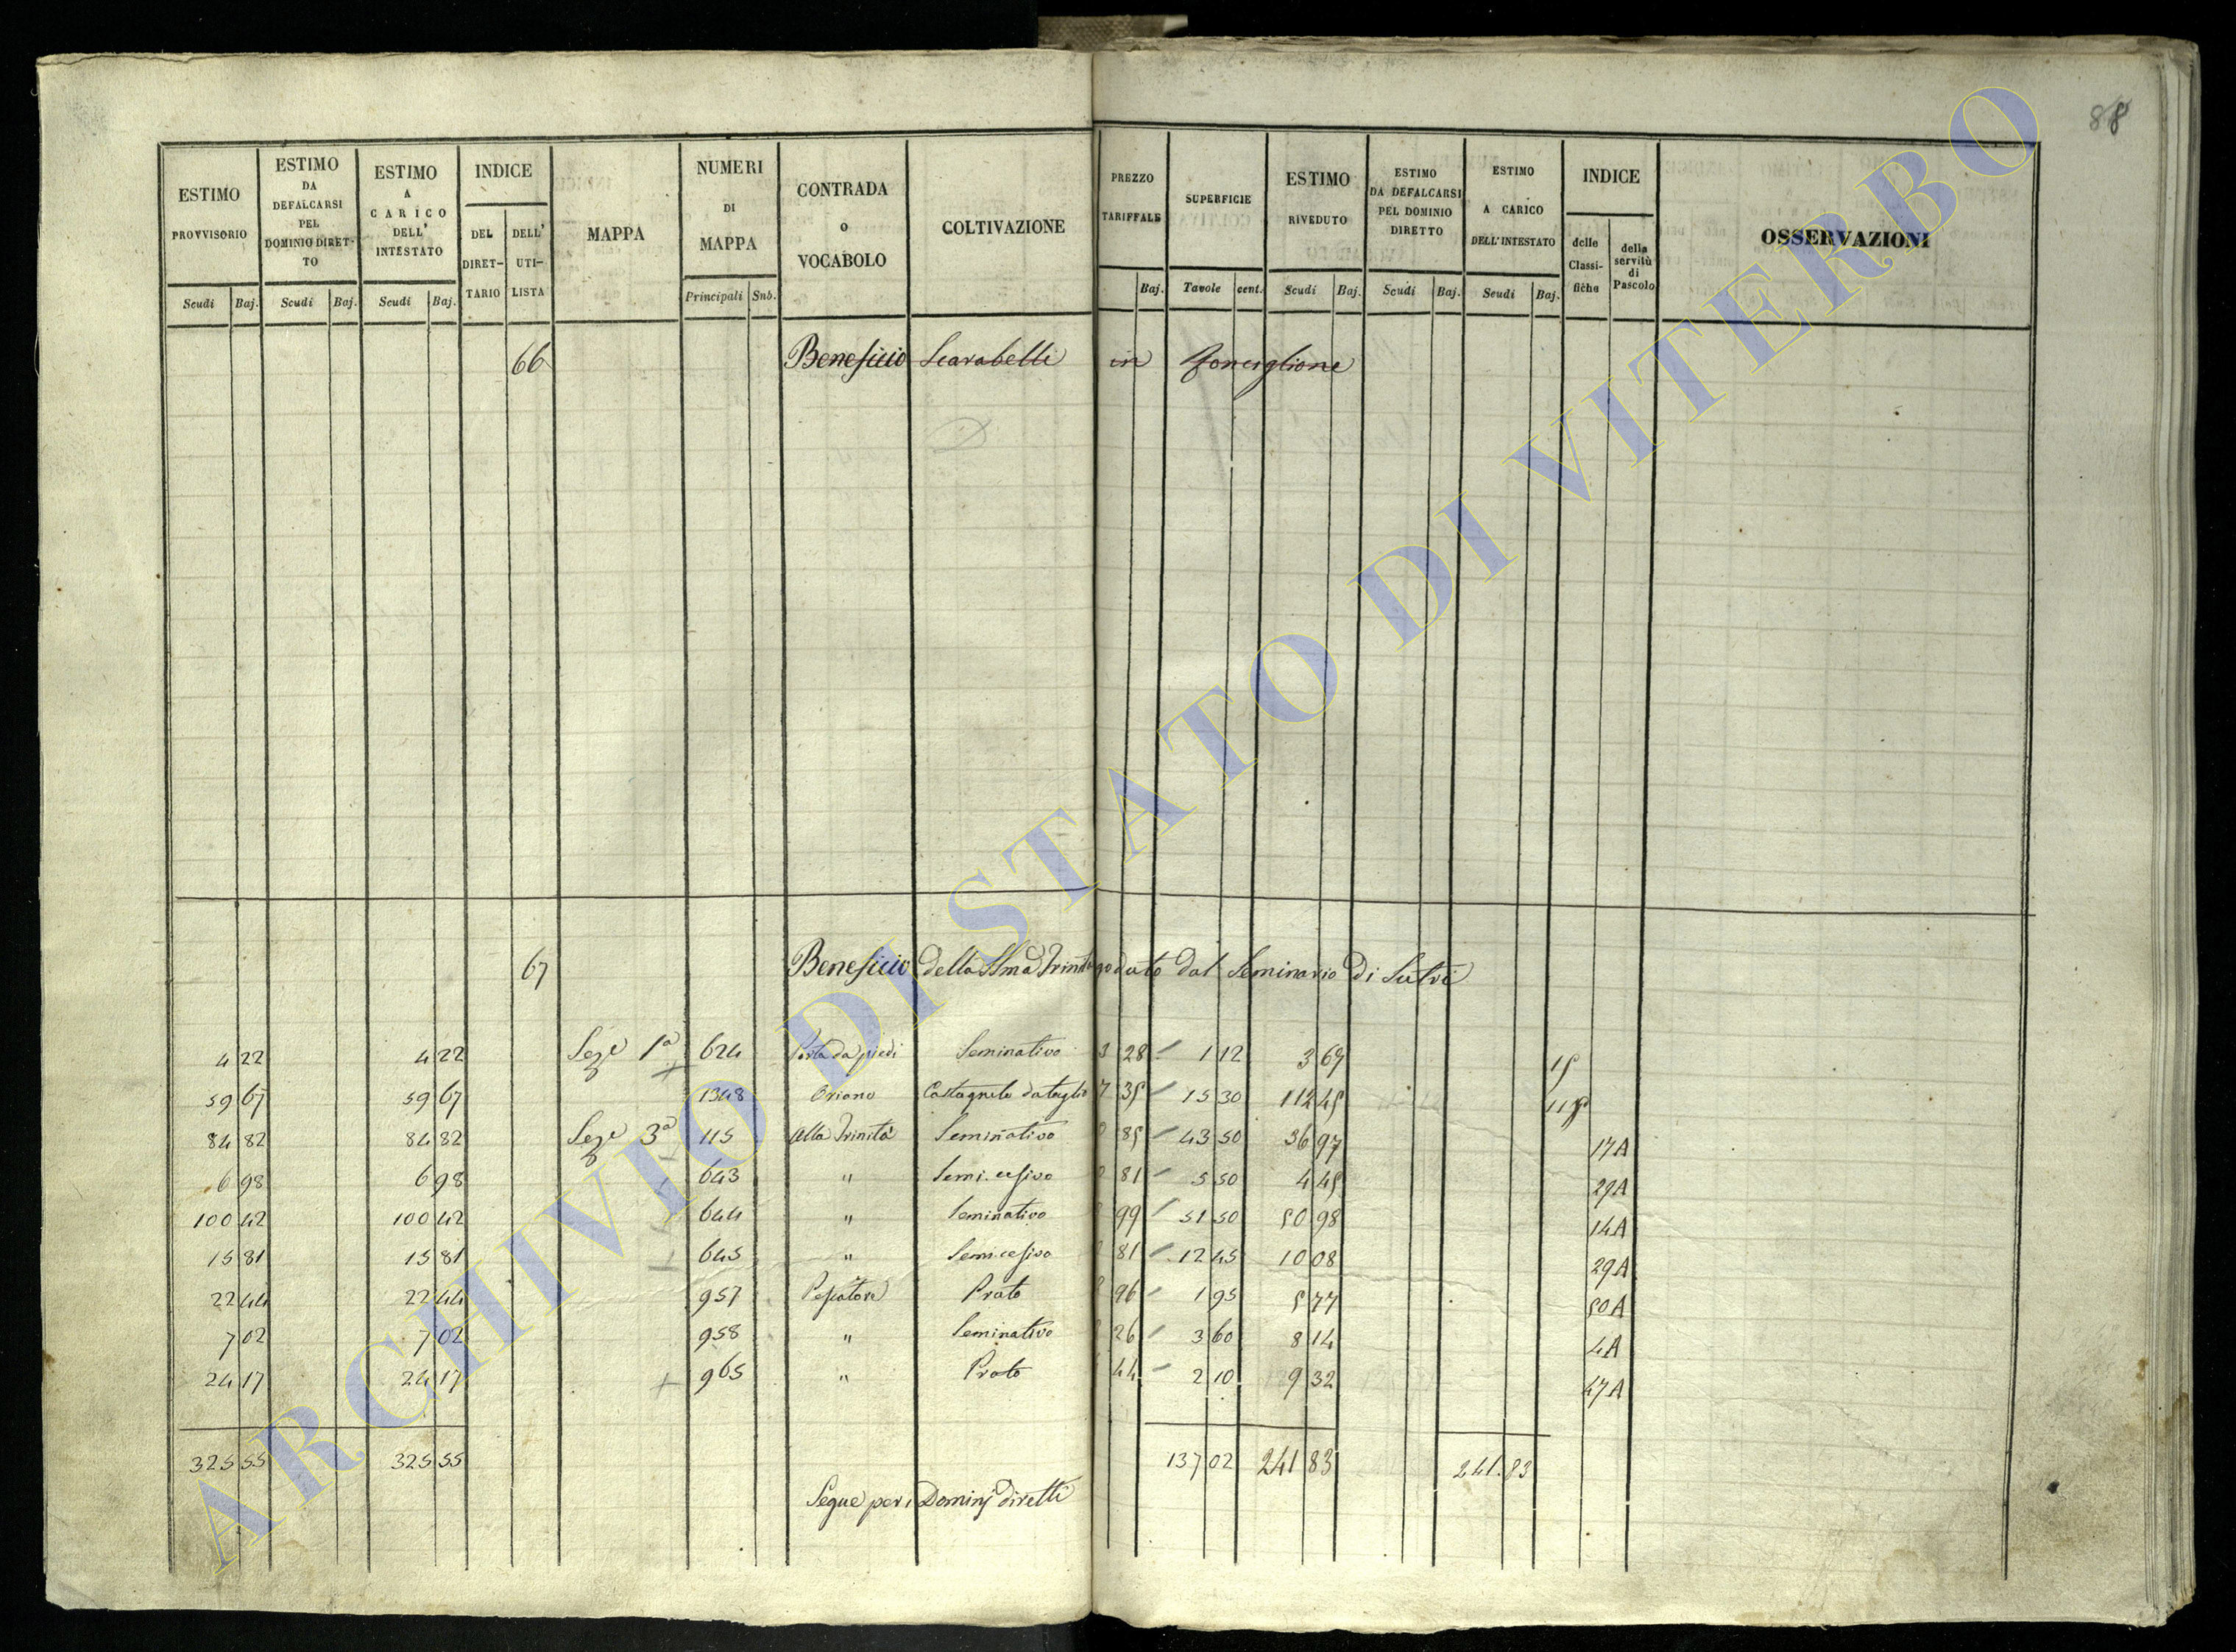 88
ESTIMO PROVVISORIO Scudi Baj.
ESTIMO DA DEFALCARSI PEL DOMINIO DIRETTO Scudi Baj.
ESTIMO A CARICO DELL' INTESTATO Scudi Baj.
INDICE DEL DIRETTARIO DELL' UTILISTA
MAPPA
NUMERI DI MAPPA Principali Sub.
CONTRADA o VOCABOLO
COLTIVAZIONE
PREZZO TARIFFALE Baj.
SUPERFICIE Tavole cent.
ESTIMO RIVEDUTO Scudi Baj.
ESTIMO DA DEFALCARSI PEL DOMINIO DIRETTO Scudi Baj.
ESTIMO A CARICO DELL' INTESTATO Scudi Baj.
INDICE delle Classifiche della servitù di Pascolo
OSSERVAZIONI
66 Beneficio Scarabelli in Ronciglione
67 Beneficio della SSma Trinità goduto dal Seminario di Sutri
4 22 4 22 Seze 1a 624 Porta da piedi Seminativo 3 28 1 12 3 67 15
59 67 59 67 1348 Oriano Castagneto da taglio 7 35 15 30 112 45
84 82 84 82 Seze 3a 115 Alla Trinità Seminativo 85 43 50 36 97 17A
6 98 6 98 643 " Semi.cesivo 81 5 50 4 45 29A
100 42 100 42 644 " Seminativo 99 51 50 50 98 14A
15 81 15 81 645 " Semicesivo 81 12 45 10 08 29A
22 44 22 44 957 Prato 96 1 95 5 77 50A
7 02 7 02 958 " Seminativo 26 3 60 8 14 4A
24 17 24 17 965 " Prato 44 2 10 9 32 47A
325 55 325 55 137 02 241 83 241.83
Segue per i Dominj diretti
ARCHIVIO DI STATO DI VITERBO